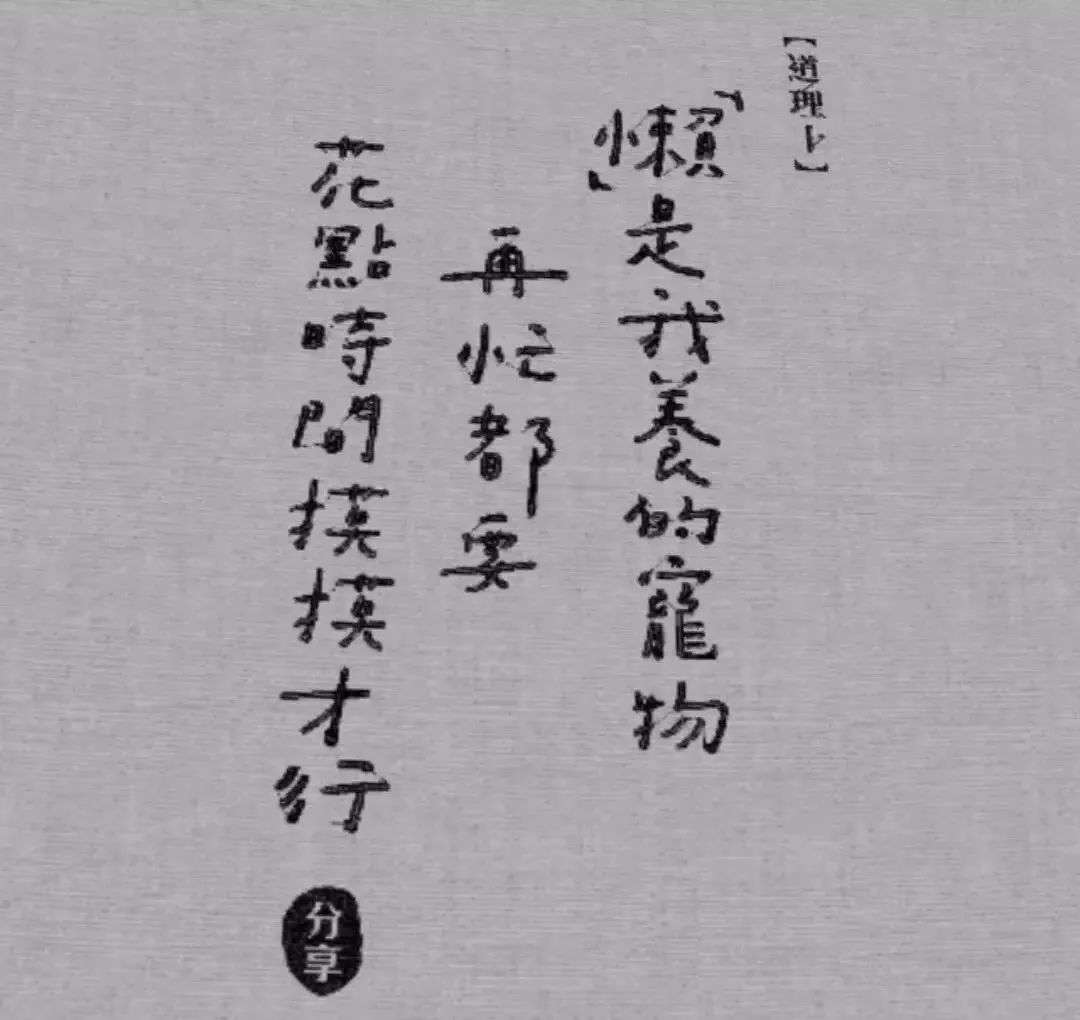 【道理上】
「懶」是我養的寵物
再忙都要
花點時間摸摸才行
分享